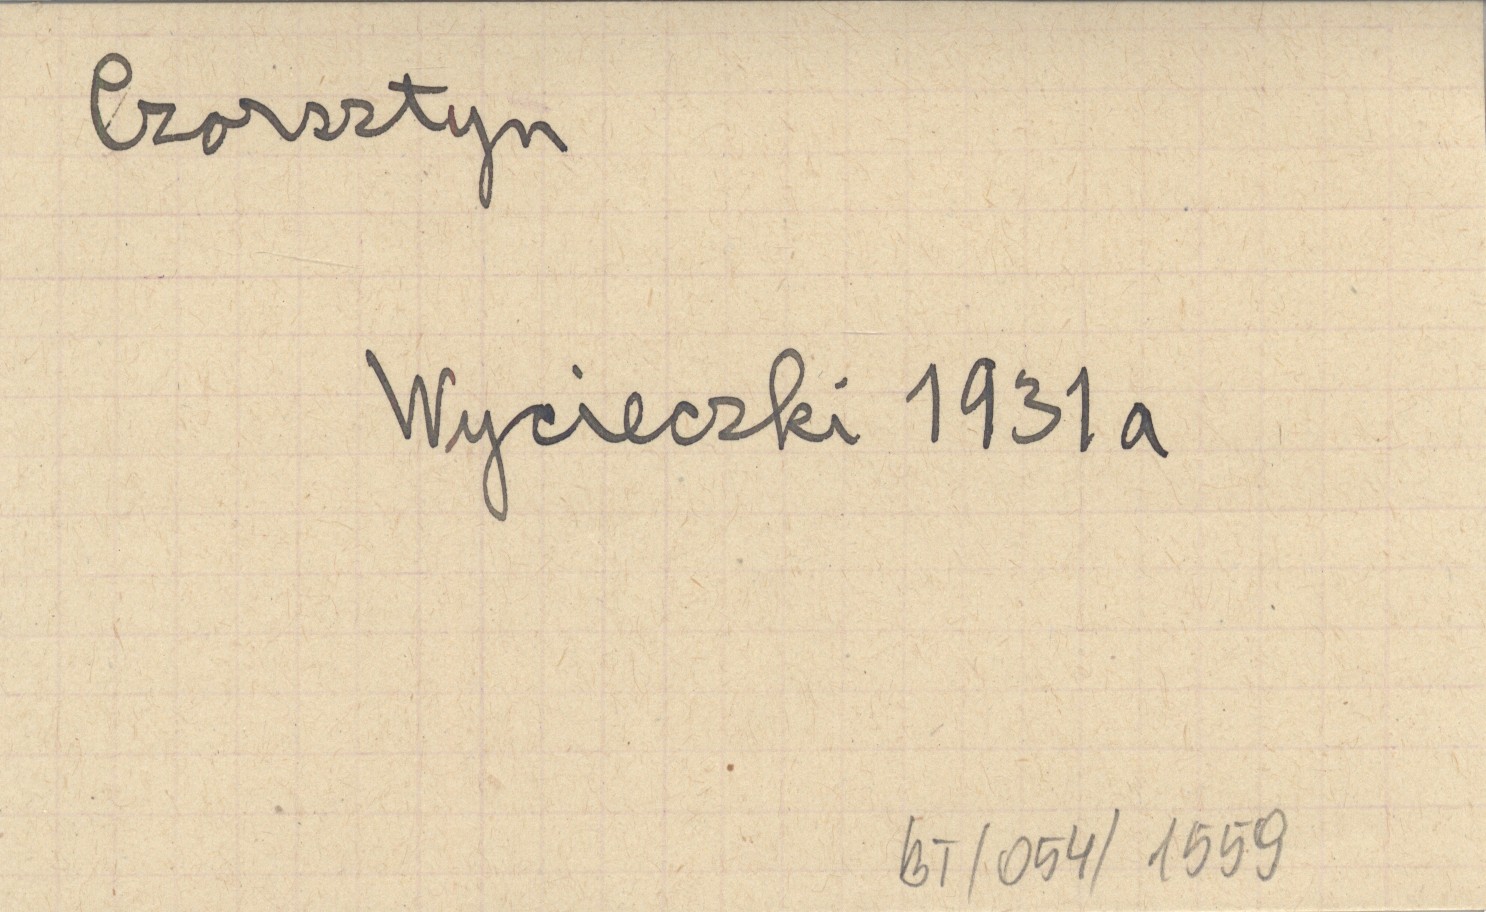 Czorsztyn
Wycieczki 1931a
BT/054/1559